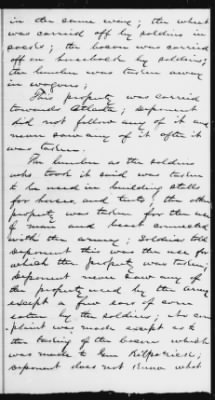 in the same way; the wheat
was carried off by soldiers in
sacks; the bacon was carried
off on horseback by soldiers;
the lumber was taken away
in wagons;
This property was carried
towards Atlanta; deponent
did not follow any of it and
never saw any of it after it
was taken.
The lumber as the soldiers
who took it said was taken
to be used in building stalls
for horses, and tents; the other
property was taken for the use
of man and beast connected
with the army; soldiers told
deponent this was the use for
which the property was taken;
deponent never saw any of
the property used by the army
except a few ears of corn
eaten by the soldiers; no com
plaint was made except as to
the taking of the bacon which
was made to Gen Kilpatrick;
deponent does not know what